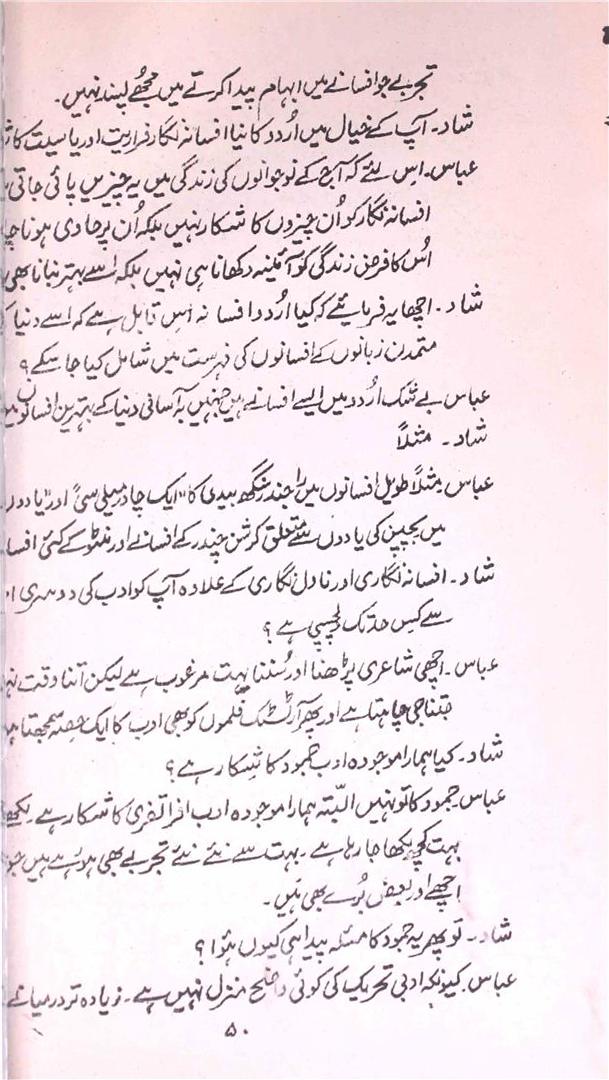 تجربے جو افسانے میں ابہام پیدا کرتے ہیں مجھے پسند نہیں۔
شاد۔ آپ کے خیال میں اُردو کا نیا افسانہ نگار فراریت اور یاسیت کا
عباس۔ اس لئے کہ آج کے نوجوانوں کی زندگی میں یہ چیزیں پائی جاتی
افسانہ نگار کو اُن چیزوں کا شکار نہیں بلکہ اُن پر حاوی ہونا
اُس کا فرض زندگی کو آئینہ دکھانا ہی نہیں بلکہ اسے بہتر بنانا بھی
شاد۔ اچھا یہ فرمائیے کہ کیا اُردو افسانہ اس قابل ہے کہ اسے دنیا
متمدن زبانوں کے افسانوں کی فہرست میں شامل کیا جا سکے؟
عباس بے شک اردو میں ایسے افسانے ہیں جنہیں بہ آسانی دنیا کے بہترین افسانوں میں
شاد۔ مثلاً
عباس۔ مثلاً طویل افسانوں میں راجندر سنگھ بیدی کا "ایک چادر میلی سی" اور "یادوں
میں بچپن کی یادوں سے متعلق کرشن چندر کے افسانے اور منٹو کے کئی
شاد۔ افسانہ نگاری اور ناول نگاری کے علاوہ آپ کو ادب کی دوسری
سے کس حد تک دلچسپی ہے؟
عباس۔ اچھی شاعری پڑھنا اور سُننا بہت مرغوب ہے لیکن اتنا وقت
جتنا جی چاہتا ہے اور پھر آرٹسٹک فلموں کو بھی ادب کا ایک حصہ سمجھتا
شاد۔ کیا ہمارا موجودہ ادب جمود کا شکار ہے؟
عباس۔ جمود کا تو نہیں البتہ ہمارا موجودہ ادب افراتفری کا شکار ہے۔
بہت کچھ لکھا جا رہا ہے۔ بہت سے نئے نئے تجربے بھی ہو رہے ہیں
اچھے اور بعض بُرے بھی ہیں۔
شاد۔ تو پھر یہ جمود کا مسئلہ پیدا ہی کیوں ہوا؟
عباس۔ کیونکہ ادبی تحریک کی کوئی واضح منزل نہیں ہے۔ زیادہ تر درمیانے
۵۰